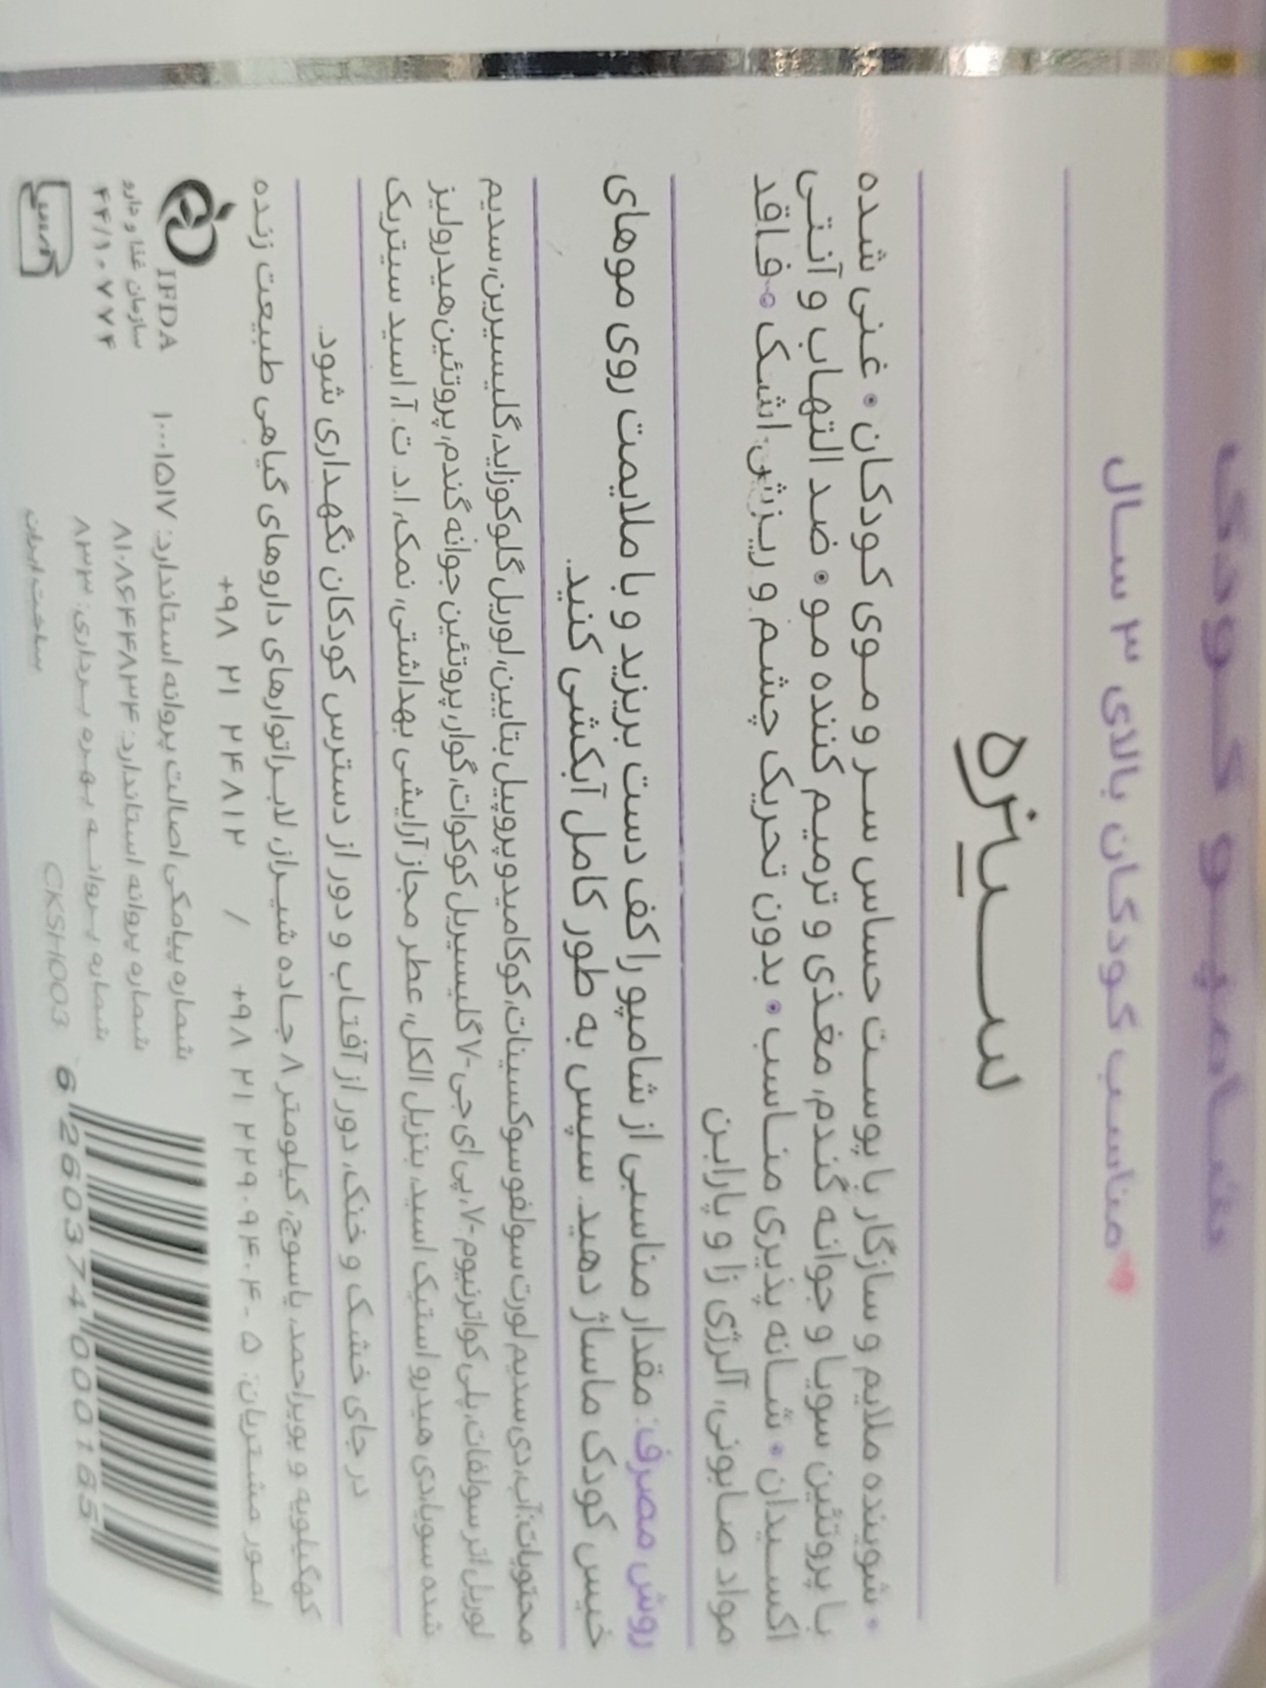 شامپو کودک
مناسب کودکان بالای ۳ سال
سبزه
• شوینده ملایم و سازگار با پوست حساس سر و موی کودکان • غنی شده
با پروتئین سویا و جوانه گندم، مغذی و ترمیم کننده مو • ضد التهاب و آنتی
اکسیدان • شانه پذیری مناسب • بدون تحریک چشم و ریزش اشک • فاقد
مواد صابونی، آلرژی زا و پارابن
روش مصرف: مقدار مناسبی از شامپو را کف دست بریزید و با ملایمت روی موهای
خیس کودک ماساژ دهید. سپس به طور کامل آبکشی کنید.
محتویات: آب، دی سدیم لورت سولفوسوکسینات، کوکامیدوپروپیل بتایین، لوریل گلوکوزاید، گلیسیرین، سدیم
لوریل اتر سولفات، پلی کواترنیوم-۷، پی ای جی-۷ گلیسیریل کوکوات، گوار، پروتئین جوانه گندم، پروتئین هیدرولیز
شده سویا، دی هیدرو استیک اسید، بنزیل الکل، عطر مجاز آرایشی بهداشتی، نمک، ا.د.ت.آ، اسید سیتریک
در جای خشک و خنک، دور از آفتاب و دور از دسترس کودکان نگهداری شود.
کهگیلویه و بویراحمد، یاسوج، کیلومتر ۸ جاده شیراز، لابراتوارهای داروهای گیاهی طبیعت زنده
امور مشتریان: ۵-۲۲۹۰۹۴۰۴ ۲۱ ۹۸+ / ۲۴۸۱۲ ۲۱ ۹۸+
IFDA
سازمان غذا و دارو
۴۴/۱۰۷۷۴
شماره پیامکی اصالت پروانه استاندارد: ۱۰۰۰۱۵۱۷
شماره پروانه استاندارد: ۸۱۰۸۶۴۴۸۳۴
شماره پروانه بهره برداری: ۸۳۳
CKSH003
ساخت ایران
6 260374 000165